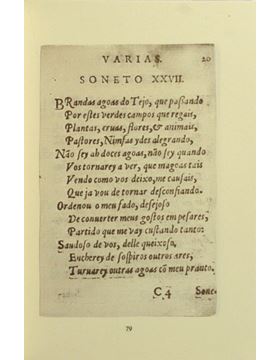 VARIAS. 20
SONETO XXVII.
BRandas agoas do Tejo, que passando
Por estes verdes campos que regais,
Plantas, eruas, flores, & animais,
Pastores, Nimfas ydes alegrando,
Não sey ah doces agoas, não sey quando
Vos tornarey a ver, que magoas tais
Vendo como vos deixo, me causais,
Que ja vou de tornar desconfiando.
Ordenou o meu fado, desejoso
De conuerter meus gostos em pesares,
Partido que me vay custando tanto:
Saudoso de vos, delle queixoso,
Encherey de sospiros outros ares,
Turuarey outras agoas cõ meu pranto.
C4 Sone-
79